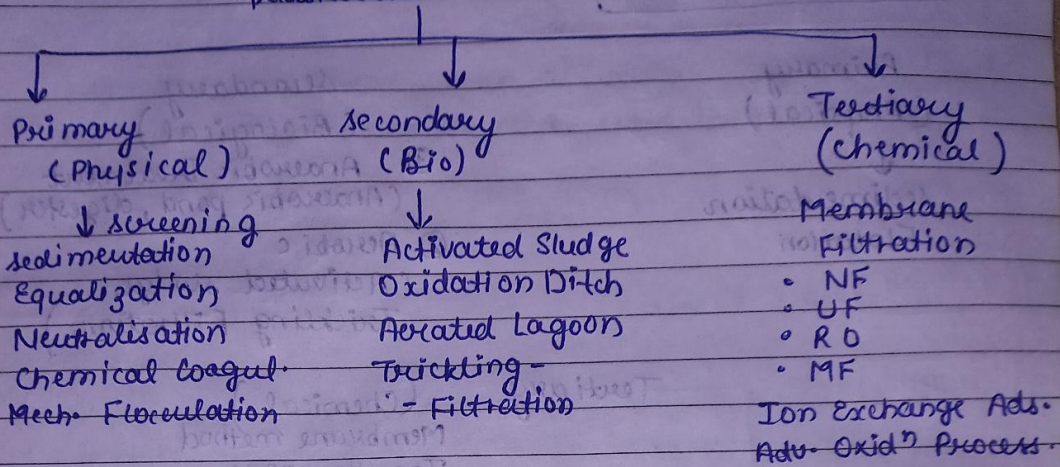 Primary
(Physical)
↓ screening
sedimentation
Equalization
Neutralisation
Chemical Coagul.
Mech. Flocculation
secondary
(Bio)
↓
Activated Sludge
Oxidation Ditch
Aerated Lagoon
Trickling -
- Filtration
Tertiary
(Chemical)
Membrane
Filtration
• NF
• UF
• RO
• MF
Ion Exchange Ads.
Adv. Oxidⁿ Process.